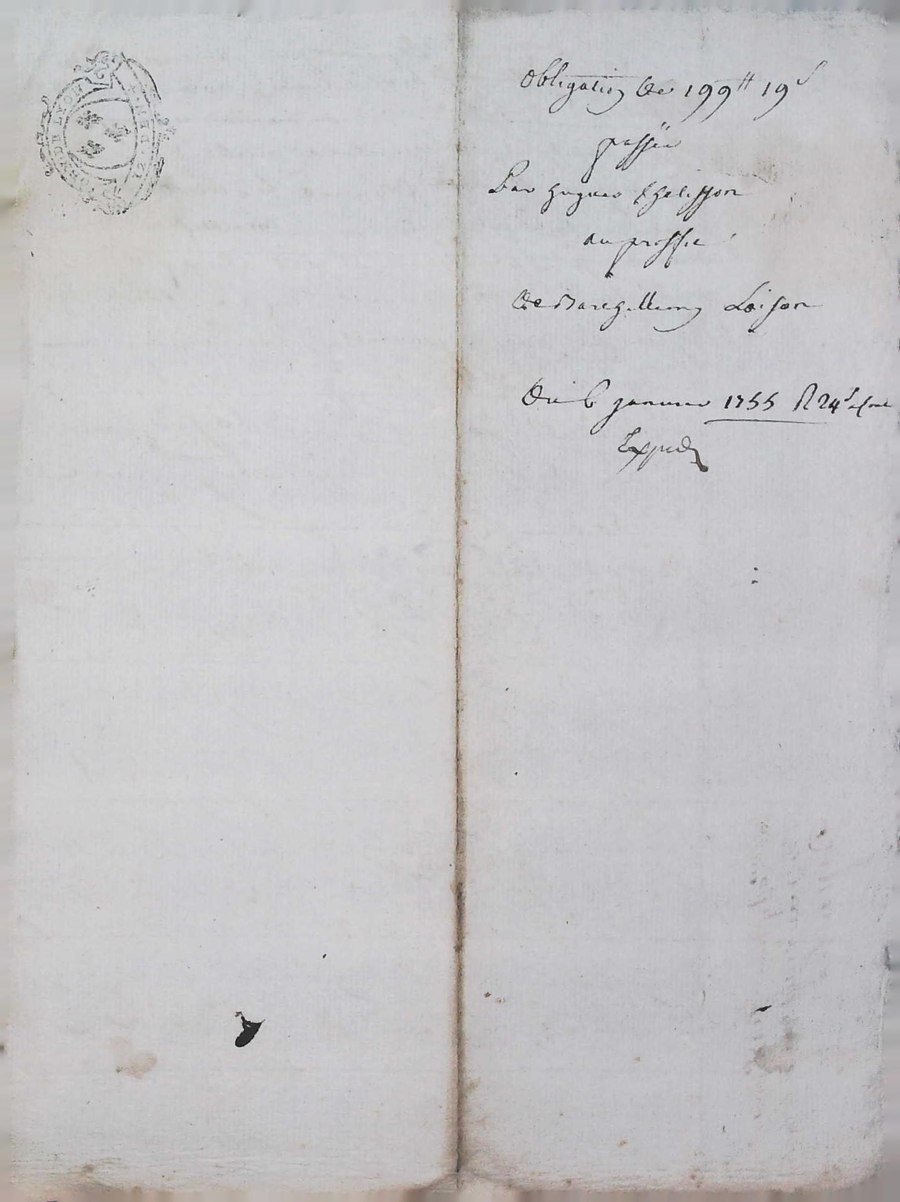 Obligation De 199tt 19s
passée
Par hugues
au proffit
De Barthellemy Loison
Du 6 janvier 1755 24s
Exped